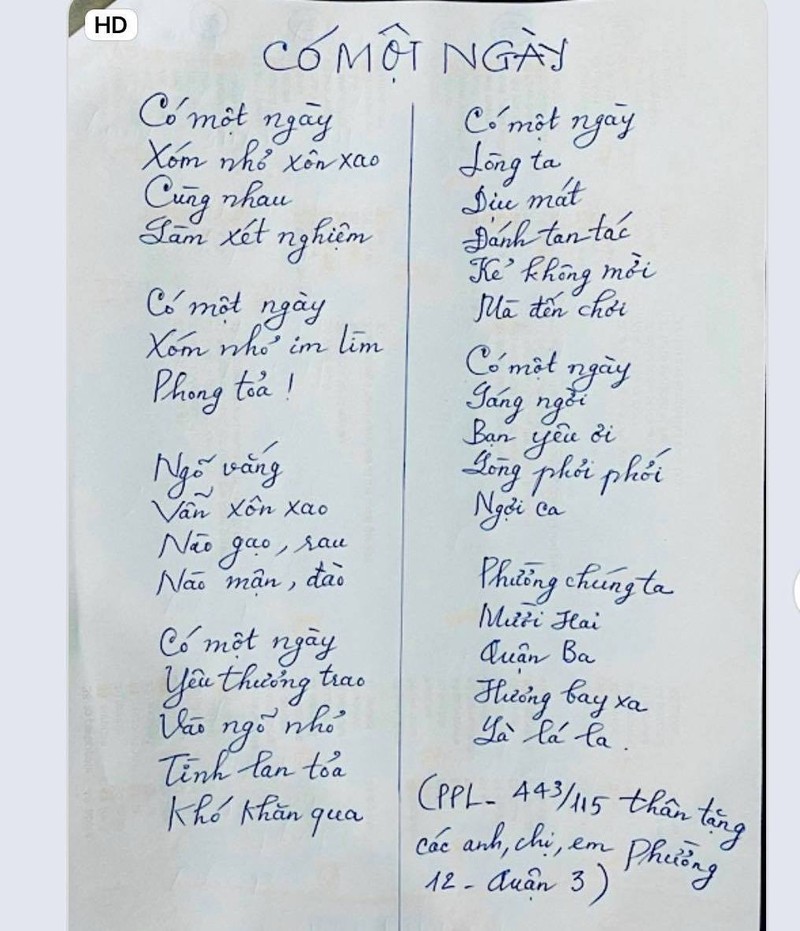 HD
CÓ MỘT NGÀY
Có một ngày
Xóm nhỏ xôn xao
Cùng nhau
Làm xét nghiệm
Có một ngày
Xóm nhỏ im lìm
Phong tỏa !
Ngõ vắng
Vẫn xôn xao
Nào gạo, rau
Nào mận, đào
Có một ngày
Yêu thương trao
Vào ngõ nhỏ
Tình lan tỏa
Khó khăn qua
Có một ngày
Lòng ta
Dịu mát
Đánh tan tác
Kẻ không mời
Mà đến chơi
Có một ngày
Sáng ngời
Bạn yêu ơi
Lòng phơi phới
Ngợi ca
Phường chúng ta
Mười Hai
Quận Ba
Hương bay xa
Là lá la.
(PPL - 443/115 thân tặng
các anh, chị, em Phường
12 - Quận 3)